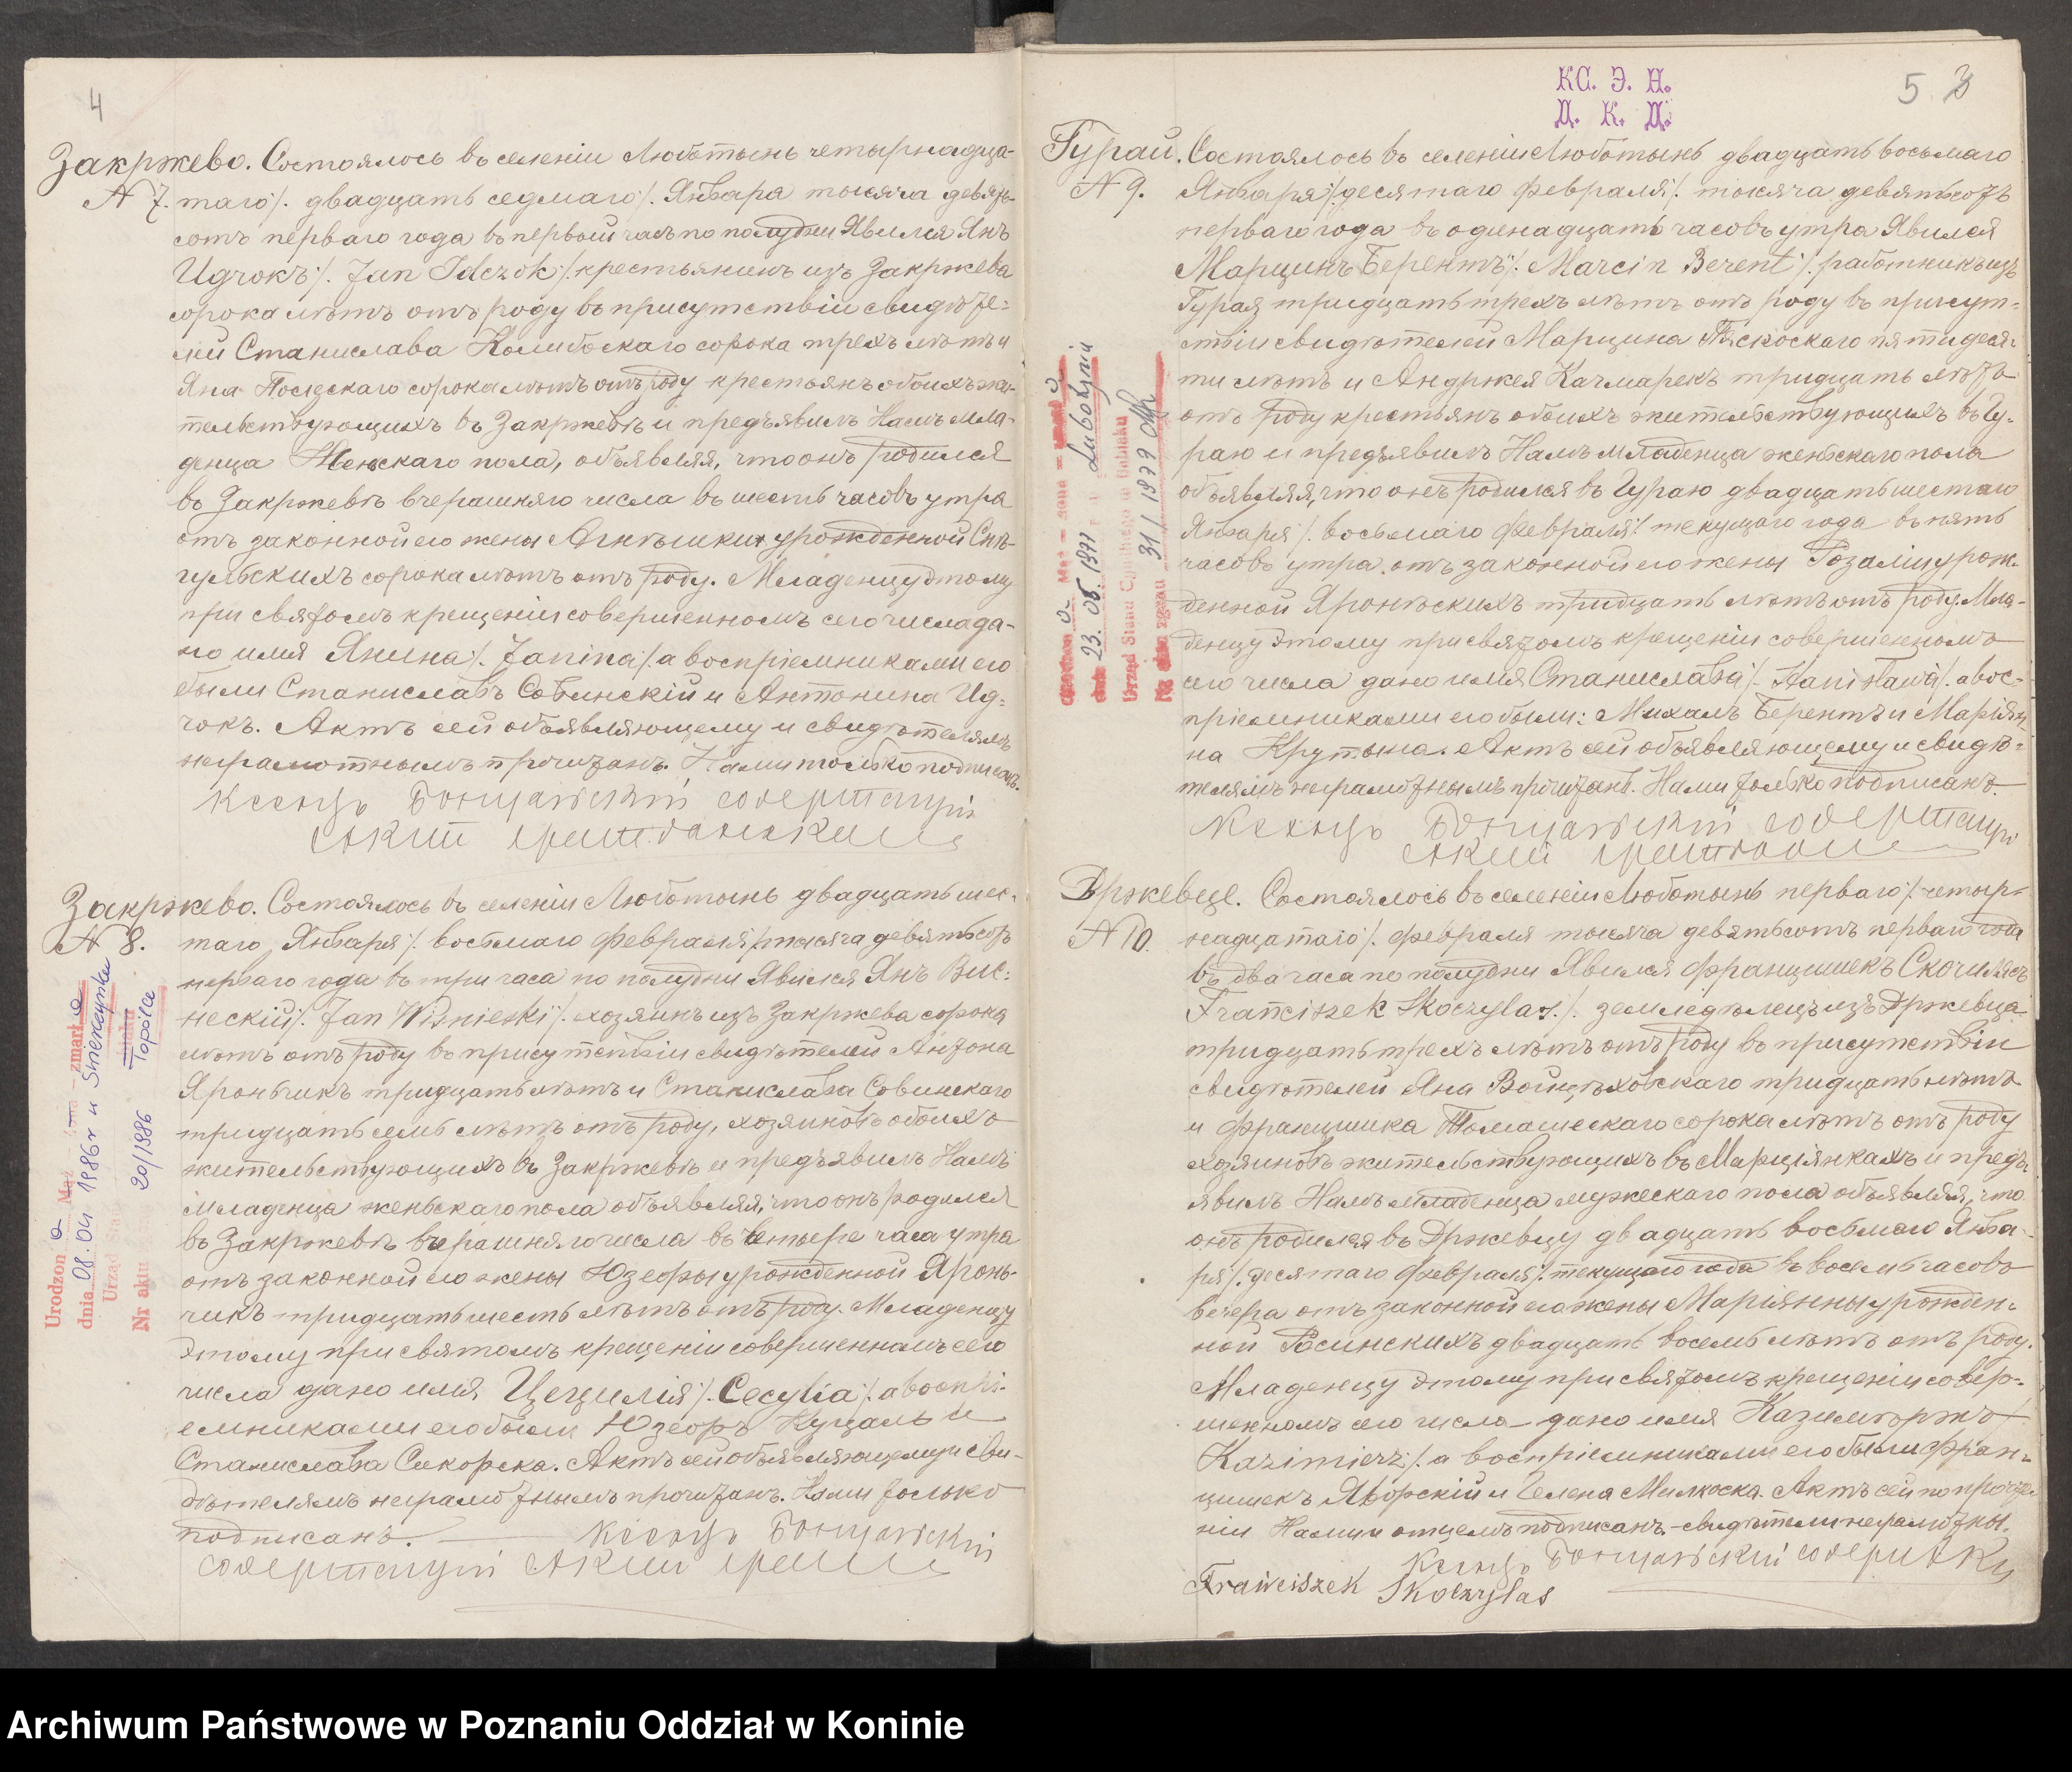 4
Закржево. Состоялось въ селеніи Люботынь четырнадца-
№ 7. таго /. двадцать седмаго /. Января тысяча девять-
сотъ перваго года въ первой часъ по полудни Явился Янъ
Идчокъ /. Jan Idczok /. крестьянинъ изъ Закржева
сорока лѣтъ отъ роду въ присутствіи свидѣте=
лей Станислава Колибскаго сорока трехъ лѣтъ и
Яна сорока лѣтъ отъ роду крестьянъ обоихъ жи-
тельствующихъ въ Закржевѣ и предъявилъ Намъ мла-
денца Женскаго пола, объявляя, что онъ родился
въ Закржевѣ вчерашняго числа въ шесть часовъ утра
отъ законной его жены Агнѣшки урожденной
сорока лѣтъ отъ роду. Младенцу этому
при святомъ крещеніи совершенномъ сего числа да-
но имя Янина /. Janina /. а воспріемниками его
были Станиславъ Совинскій и Антонина Ид=
чокъ. Актъ сей объявляющему и свидѣтелямъ
неграмотнымъ прочитанъ. Нами только подписанъ.
Ксендзъ содержащій
Акты гражданскаго
Закржево. Состоялось въ селеніи Люботынь двадцать шес-
№ 8. таго Января /. восьмаго Февраля /. тысяча девятьсотъ
перваго года въ три часа по полудни Явился Янъ Вис=
нескій /. Jan Wisnieski /. хозяинъ изъ Закржева сорока
лѣтъ отъ роду въ присутствіи свидѣтелей Антона
Яроньчикъ тридцать лѣтъ и Станислава Совинскаго
тридцать семь лѣтъ отъ роду, хозяиновъ обоихъ
жительствующихъ въ Закржевѣ и предъявилъ Намъ
младенца женьскаго пола объявляя, что онъ родился
въ Закржевѣ вчерашняго числа въ четыре часа утра
отъ законной его жены Юзефы урожденной Яронь-
чикъ тридцать шесть лѣтъ отъ роду. Младенцу
этому при святомъ крещеніи совершенномъ сего
числа дано имя Цецилія /. Cecylia /. а воспрі-
емниками его были Юзефъ Куцаль и
Станислава Сикорска. Актъ сей объявляющему и сви-
дѣтелямъ неграмотнымъ прочитанъ. Нами только
подписанъ. Ксендзъ
содержащій Акты
Urodzon a zmarł a
dnia 08.04 1986 r w
Urząd Stanu Topólce
Nr aktu 20/1986
КС. Э. Н.
Д. К. Д.
5 3
Гурай. Состоялось въ селеніи Люботынь двадцать восьмаго
№ 9. Января /. десятаго Февраля /. тысяча девятьсотъ
перваго года въ одинадцать часовъ утра Явился
Марцинъ Берентъ /. Marcin Berent /. работникъ изъ
Гурая тридцать трехъ лѣтъ отъ роду въ присут=
ствіи свидѣтелей Марцина Пяскоскаго пятидеся-
ти лѣтъ и Андржея Качмарекъ тридцать лѣтъ
отъ роду крестьянъ обоихъ жительствующихъ въ Гу-
раю и предъявилъ Намъ младенца женьскаго пола
объявляя, что онъ родился въ Гураю двадцать шестаго
Января /. восьмаго Февраля /. текущаго года въ пять
часовъ утра отъ законной его жены Розаліи урож-
денной тридцать лѣтъ отъ роду. Мла-
денцу этому при святомъ крещеніи совершенномъ
сего числа дано имя Станислава /. Stanisława /. а вос-
пріемниками его были: Михалъ Берентъ и Маріян-
на Актъ сей объявляющему и свидѣ=
телямъ неграмотнымъ прочитанъ. Нами только подписанъ.
Ксендзъ содержащій
Акты
dnia 23.05.1971 r w Lubotyniu
Urząd Stanu Cywilnego w Babiaku
Држевце. Состоялось въ селеніи Люботынь перваго /. четыр-
№ 10. надцатаго /. Февраля тысяча девятьсотъ перваго года
въ два часа по полудни Явился Францишекъ Скочилясъ
Franciszek Skoczylas /. земледѣлецъ изъ Држевца
тридцать трехъ лѣтъ отъ роду въ присутствіи
свидѣтелей Яна Войцѣховскаго тридцать лѣтъ
и Францишка Томашескаго сорока лѣтъ отъ роду
хозяиновъ жительствующихъ въ Марціянкахъ и предъ-
явилъ Намъ младенца мужескаго пола объявляя, что
онъ родился въ Држевцу двадцать восьмаго Янва-
ря /. десятаго Февраля /. текущаго года въ восемь часовъ
вечера отъ законной его жены Маріянны урожден-
ной Росинскихъ двадцать восемь лѣтъ отъ роду.
Младенцу этому при святомъ крещеніи совер-
шенномъ сего числа дано имя Казимѣржъ /.
Kazimierz /. а воспріемниками его были Фран-
цишекъ Яворскій и Гелена Милкоска. Актъ сей по прочте-
ніи Нами и отцемъ подписанъ, свидѣтели неграмотны.
Ксендзъ
Franciszek Skoczylas
Archiwum Państwowe w Poznaniu Oddział w Koninie